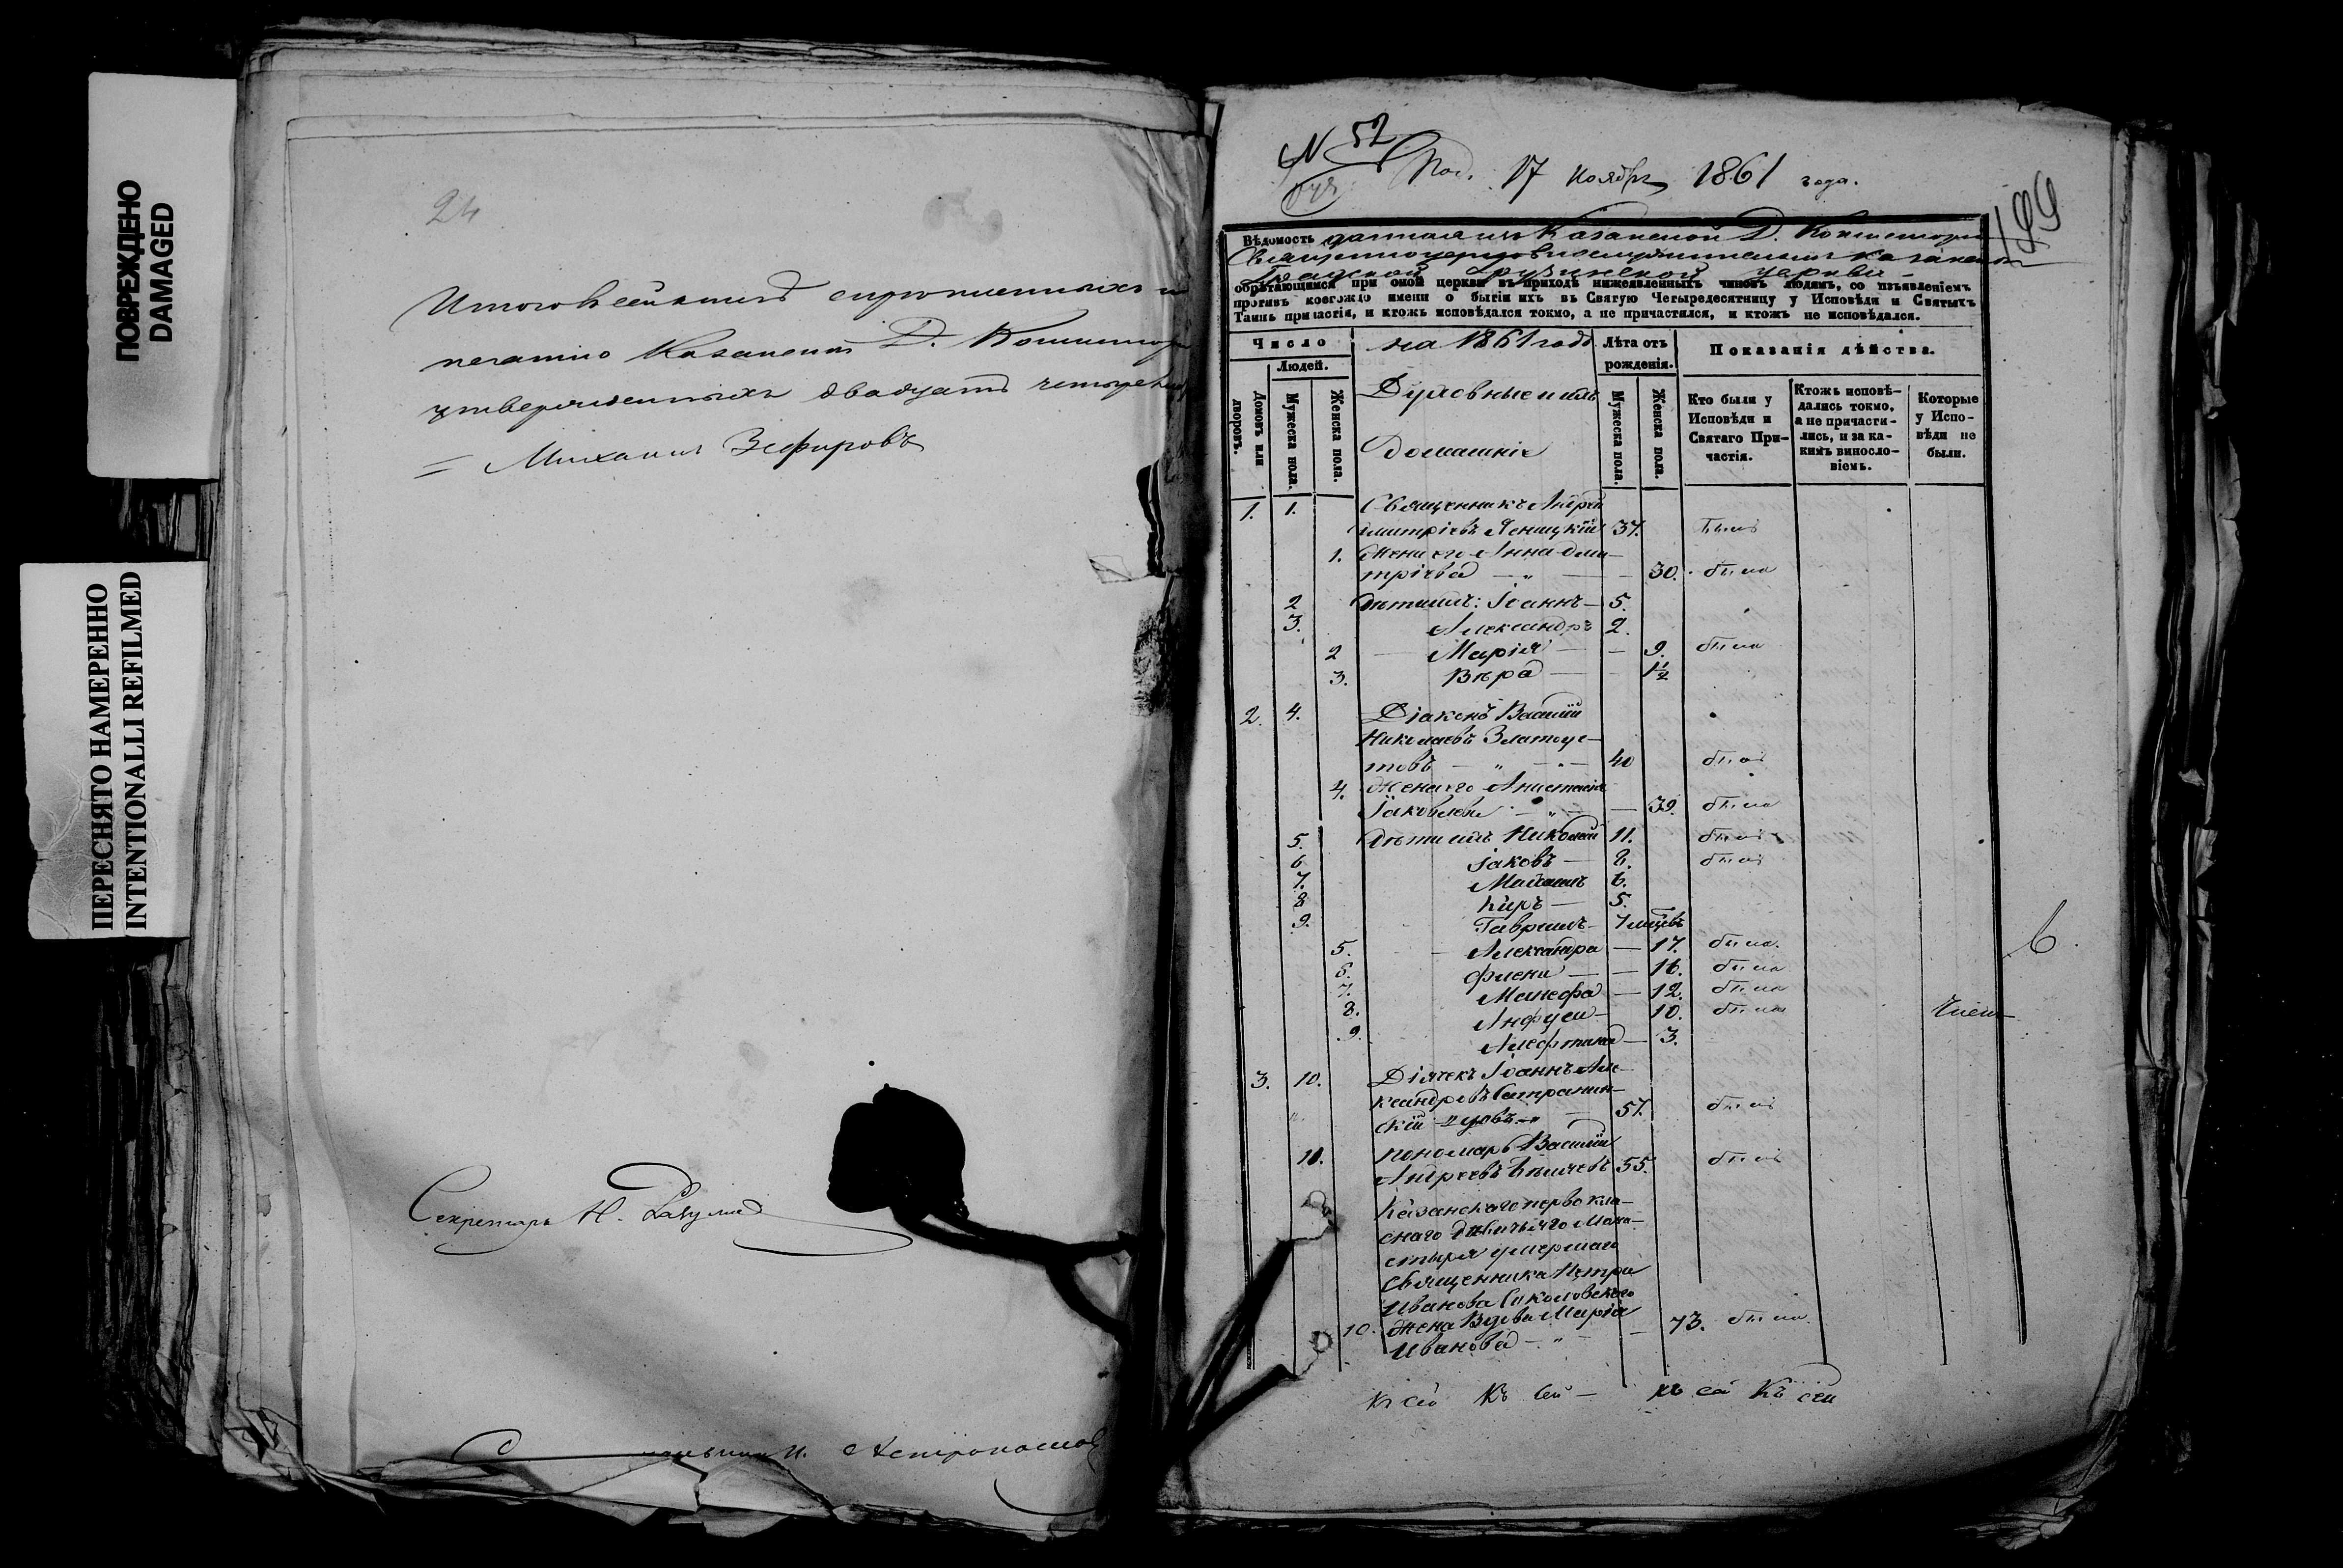 ПОВРЕЖДЕНО
DAMAGED
ПЕРЕСНЯТО НАМЕРЕННО
INTENTIONALLI REFILMED
24
Итого въ сей книгѣ скрѣпленныхъ и
печатью Казанской Д. Консистор
утвержденныхъ двадцать четыре
Михаилъ Зефировъ
Секретарь Н.
N 52
Под. 17 Ноября 1861 года.
199
Вѣдомость данная изъ Казанской Д. Консисторіи
Священноцерковнослужителямъ Казанской
Градской Грузинской церкви
обрѣтающимся при оной церкви въ приходѣ нижеявленныхъ чиновъ людямъ, со изъявленіемъ
противъ коегождо имени о бытіи ихъ въ Святую Четыредесятницу у Исповѣди и Святыхъ
Таинъ причастія, и ктожъ исповѣдался токмо, а не причастился, и ктожъ не исповѣдался.
Число
Людей.
Домовъ или дворовъ.
Мужеска пола.
Женска пола.
на 1861 годъ
Духовные и ихъ
Домашніе
Лѣта отъ рожденія.
Мужеска пола.
Женска пола.
Показанія дѣйства.
Кто были у Исповѣди и Святаго Причастія.
Ктожъ исповѣдались токмо, а не причастились, и за какимъ винословіемъ.
Которые у Исповѣди не были.
1. 1. Священникъ Андрей
Димитріевъ Ясницкій 37. былъ
1. Жена его Анна Дми-
тріева 30. была
2 Дѣти ихъ: Іоаннъ 5.
3. Александръ 2.
2 Марія 9. была
3. Вѣра 1½
2. 4. Діаконъ Василій
Николаевъ Златоус-
товъ 40 былъ
4. Жена его Анастасія
Іаковлева 39. была
5. Дѣти ихъ Николай 11. былъ
6 Іаковъ 8. былъ
7. Михаилъ 6.
8 Киръ 5.
9. Гавріилъ
5. Александра 17. была
6. Фаена 16. была
7. Манефа 12. была
8. Анфуса 10. была
9. Алефтина 3.
3. 10. Дьячекъ Іоаннъ Але-
ксандровъ
вдовъ 57. былъ
11. Пономарь Василій
Андреевъ 55. былъ
Казанскаго первокла-
снаго Дѣвичьяго Мона-
стыря умершаго
Священника Петра
Иванова Соколовскаго
10. Жена Вдова Марія
Иванова 73. была
6